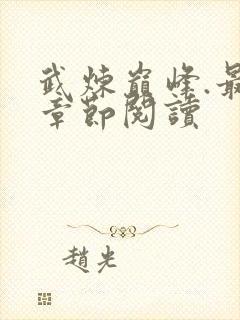 武炼巅峰.最
章節閱讀
趙光